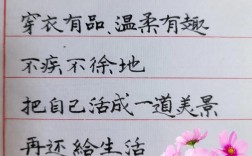 穿衣有品、温柔有趣
不疾不徐地
把自己活成一道美景
再还給生活